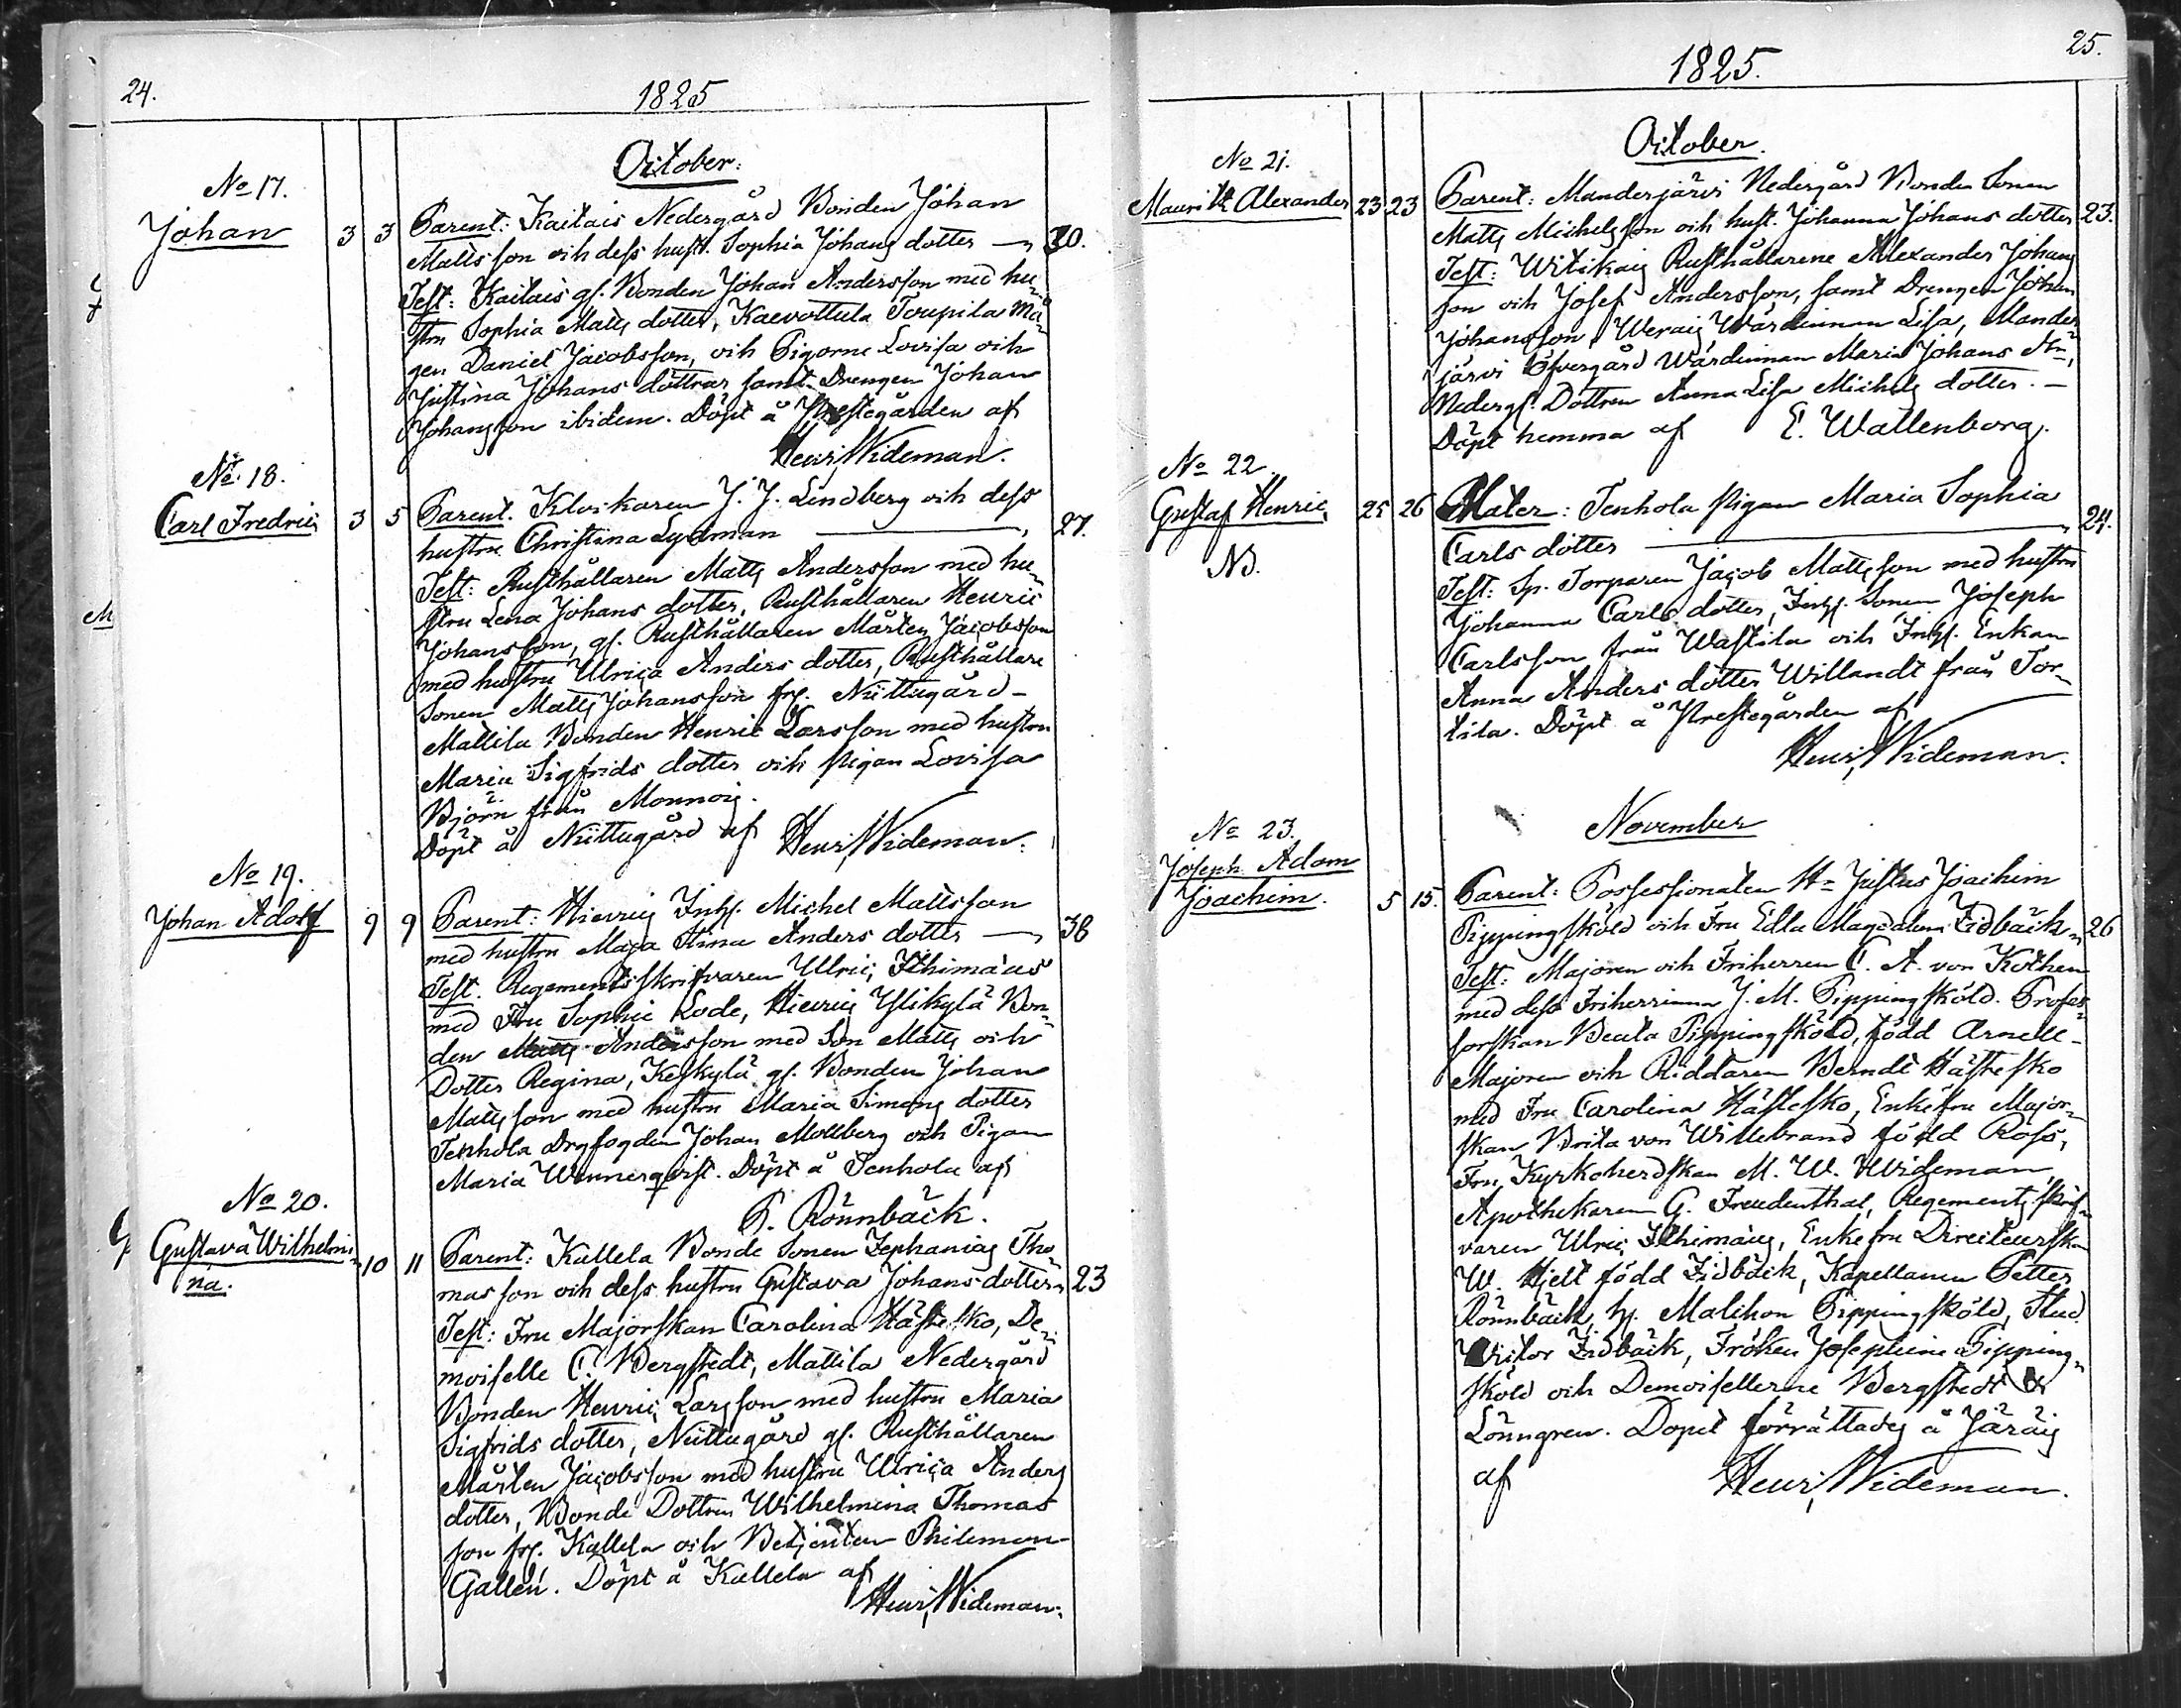 24.
1825
October:
No 17.
Johan 3 3 Parent: Kaitais Nedergård Bonden Johan
Matts son och dess hust. Sophia Johans dotter — 30.
Test: Kaitais gl. Bonden Johan Andersson med hu-
stru Sophia Matts dotter, Kaevottula Toupila Må-
gen Daniel Jacobsson, och Pigorne Lovisa och
Justina Johans döttrar samt Drengen Johan
Johansson ibidem. Döpt å Prestegården af
Henr. Wideman.
No 18.
Carl Fredric 3 5 Parent. Klockaren J. J. Lindberg och dess
hustru Christina Lydman — 27.
Test: Rusthållaren Matts Andersson med hu-
stru Lena Johans dotter, Rusthållaren Henric
Johansson, gl. Rusthållaren Mårten Jacobsson
med hustru Ulrica Anders dotter, Rusthållare
Sonen Matts Johansson frå. Niittugård -
Mattila Bonden Henric Larsson med hustru
Maria Sigfrids dotter och pigan Lovisa
Björn från Monnois.
Döpt å Niittugård af Henr. Wideman.
No 19.
Johan Adolf 9 9 Parent: Hievris Inhs. Michel Mattsson
med hustru Maja Stina Anders dotter — 38
Test. Regementsskrifvaren Ulric Ithimæus
med Fru Sophie Lode, Hievris Ylikylä Bon-
den Matts Andersson med Son Matts och
Dotter Regina, Keskylä gl. Bonden Johan
Matts son med hustru Maria Simons dotter
Tenhola Drgfogden Johan Mollberg och Pigan
Maria Wennerqvist. Döpt å Tenhola af
P. Rönnbäck.
No 20.
Gustava Wilhelmi-
na. 10 11 Parent: Kallela Bonde Sonen Zephanias Tho-
mas son och dess hustru Gustava Johans dotter 23
Test: Fru Majorskan Carolina Hästesko, De-
moiselle C. Bergstedt, Mattila Nedergård
Bonden Henric Larsson med hustru Maria
Sigfrids dotter, Niittugård gl. Rusthållaren
Mårten Jacobsson med hustru Ulrica Anders
dotter, Bonde Dottren Wilhelmina Thomas
son frå. Kallela och Betjenten Philemon
Gallén. Döpt å Kallela af
Henr. Wideman.
25.
1825.
October.
No 21.
Mauritz Alexander 23 23 Parent: Manderjärvi Nedergård Bonden Sonen
Matts Michels son och hust. Johanna Johans dotter 23.
Test: Witikais Rusthållarene Alexander Johans
son och Josef Andersson, samt Drengen Johan
Johansson, Werais Wärdinnan Lisa, Mander-
järvi Öfvergård Wärdinnan Maria Johans Dr,
Nedergs. Dottren Anna Lisa Michels dotter. —
Döpt hemma af E. Wallenborg.
No 22.
Gustaf Henric 25 26 Mater: Tenhola Pigan Maria Sophia
NB. Carls dotter — 24.
Test: Sp. Torparen Jacob Mattsson med hustru
Johanna Carls dotter, Inhs. Sonen Joseph
Carlsson från Wastila och Inhs. Enkan
Anna Anders dotter Willandt från Tor-
tila. Döpt å Prestegården af
Henr. Wideman.
November
No 23.
Joseph Adam
Joachim. 5 15. Parent: Possessionaten Hr Justus Joachim
Pippingsköld och Fru Edla Magdalena Zidbäck 26
Test: Majoren och Friherren C. A. von Köthen
med dess Friherrinna J. M. Pippingsköld. Profes-
sorskan Beata Pippingsköld, född Arnell -
Majoren och Riddaren Berndt Hästesko
med Fru Carolina Hästesko, Enkefru Major-
skan Brita von Willebrand född Ross,
Fru Kyrkoherdskan M. W. Wideman,
Apothekaren G. Freudenthal, Regements skrif-
varen Ulric Ithimæus, Enkefru Directeurskan
W. Hjelt född Zidbäck, Kapellanen Petter
Rönnbäck, hr. Malikon Pippingsköld, Stud.
Victor Zidbäck, Fröken Josephine Pipping-
sköld och Demoisellerne Bergstedt &
Lönngren. Dopet förrättades å Järäis
af Henr. Wideman.